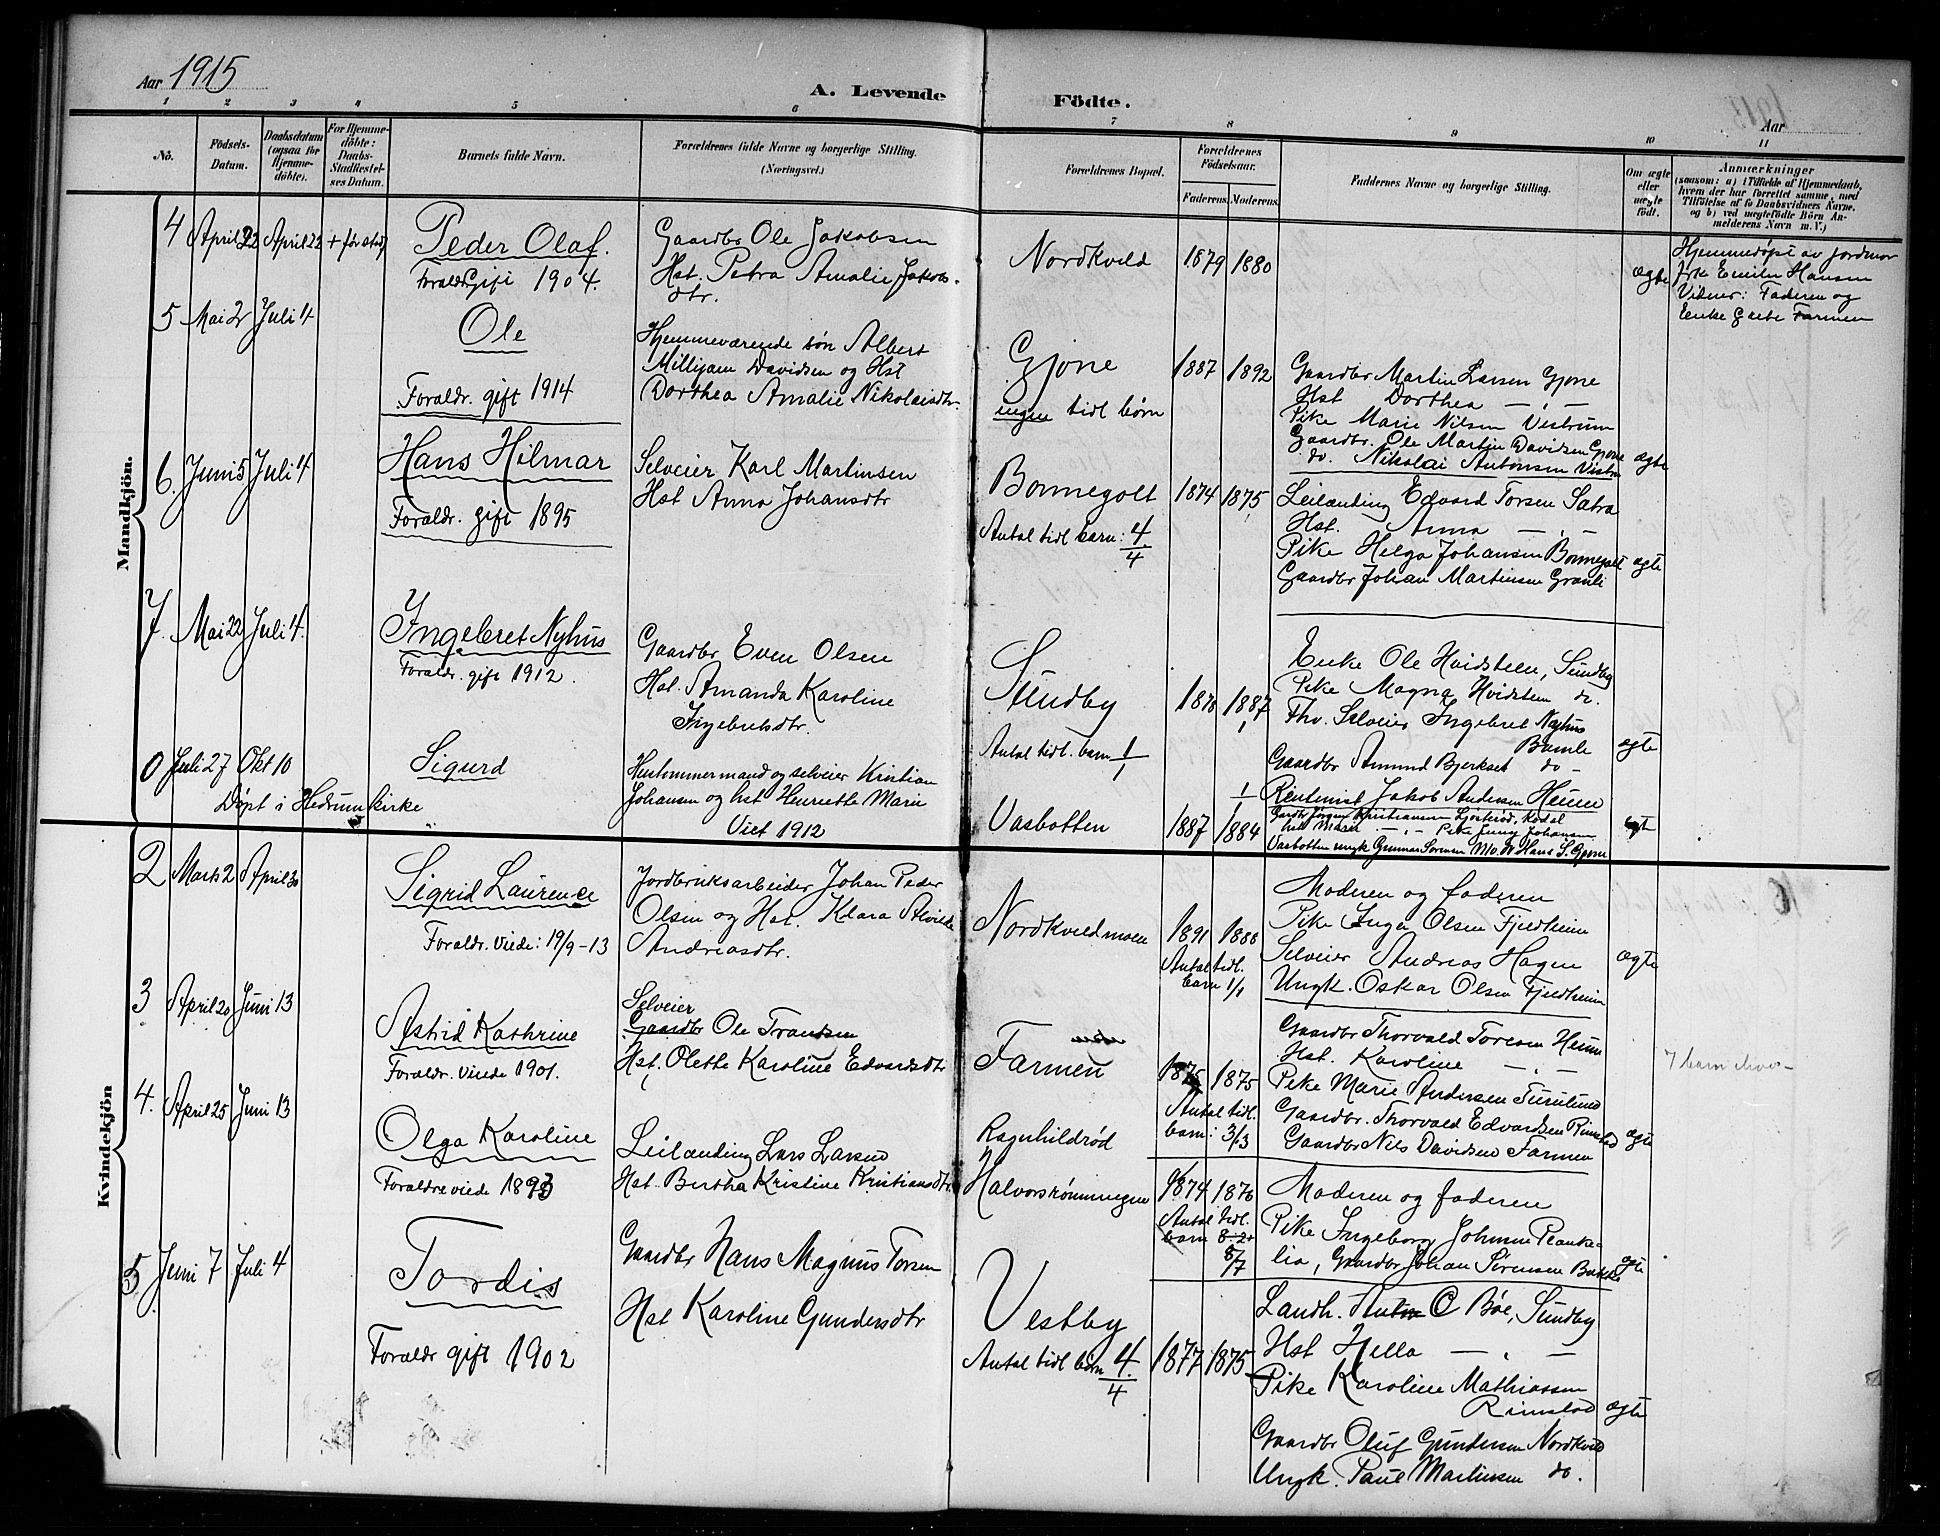 Aar 1915
A. Levende Födte.
Aar
1 2 3 4 5 6 7 8 9 10 11
No.
Födsels-
Datum.
Daabsdatum
(ogsaa for
Hjemme-
döbte).
For Hjemme-
döbte:
Daabs-
Stadfæstel-
ses Datum.
Barnets fulde Navn.
Forældrenes fulde Navne og borgerlige Stilling.
(Næringsvei.)
Forældrenes Bopæl.
Forældrenes
Födselsaar.
Faderens. Moderens.
Faddernes Navne og borgerlige Stilling.
Om ægte
eller
uægte
födt.
Anmærkninger
(saasom: a) i Tilfælde af Hjemmedaab,
hvem der har forrettet samme, med
Tilföielse af to Daabsvidners Navne,
og b) ved uægtefödte Börn An-
melderens Navn m. V.)
Mandkjön.
4 April 22 April 22 + før stadf
Peder Olaf.
Foraldr Gift 1904.
Gaardbr Ole Jakobsen
Hst. Petra Amalie Jakobs-
dtr.
Nordkveld 1879 1880
ægte
Hjemmedøpt av jordmor
Frk Emilie Hansen
Vidner: Faderen og
Enke Farmen
5 Mai 2 Juli 4
Ole
Foraldr. gift 1914
Hjemmeværende søn Albert
Millijam Davidsen og Hst
Dorthea Amalie Nikolaisdtr.
Gjone
ingen tidl børn
1887 1892
Gaardbr Martin Larsen Gjone
Hst Dorthea — „ —
Pike Marie Nilsen Vestrum
Gaardbr. Ole Martin Davidsen Gjone
do. Nikolai Antonsen Vestrum
ægte
6. Juni 5 Juli 4
Hans Hilmar
Foraldr. gift 1895
Selveier Karl Martinsen
Hst Anna Johansdtr
Bonnegolt
Antal tidl barn: 4/4
1874 1875
Leilænding Edvard Torsen Satra
Hst. Anna — „ —
Pike Helga Johansen Bonnegolt
Gaardbr Johan Martinsen Granli
ægte
7. Mai 22 Juli 4.
Ingebret Nyhus
Foraldr. gift 1912.
Gaardbr Even Olsen
Hst. Amanda Karoline
Ingebretsdtr.
Sundby
Antal tidl. barn 1/1
1878 1887
Enke Ole Hvidsteen, Sundby
Pike Magna Hvidsten do.
Fhv. Selveier Ingebret Nyhus
Bamle
Gaardbr Amund Bjerkset do-
Rentenist Jakob Andersen Heum
ægte
0 Juli 27 Okt 10
Døpt i Hedrum kirke
Sigurd
Hustømmermand og selveier Kristian
Johansen og hst Henriette Marie
Viet 1912
Vasbotten
1887 1884
1
Gardbr Jørgen Kristiansen Kodal
hst Marie — „ — Pike Jenny Johansen
Vasbotten ungk Gunnar Sørensen Hans S. Gjone
ægt
Kvindekjön
2 Marts 2 April 30
Sigrid Laurence
Foraldr. viede: 19/9-13
Jordbruksarbeider Johan Peder
Olsen og Hst. Klara Alvilde
Andreasdtr.
Nordkveldmoen 1891 1888
Antal tidl.
barn 1/1
Moderen og faderen
Pike Inga Olsen Fjeldheim
Selveier Andreas Hagen
Ungk. Oskar Olsen Fjeldheim
ægte
3 April 20 Juni 13
Astrid Kathrine
Foraldr. viede 1901.
Selveier
Gaardbr Ole Trandsen
Hst. Olette Karoline Edvardsdtr
Farmen
1875 1875
Antal tidl.
barn: 3/3
Gaardbr Thorvald Toresen Heum
Hst. Karoline — „ —
Pike Marie Andersen
Gaardbr. Thorvald Edvardsen Rimstad
Gaardbr Nils Davidsen Farmen
ægte
7 barn
4. April 25 Juni 13
Olga Karoline
Foraldre viede 1893
Leilænding Lars Larsen
Hst. Bertha Kristine Kristiansdtr.
Ragnhildrød
Halvorsrønningen
1874 1876
Antal tidl.
barn 8/7
Moderen og faderen
Pike Ingeborg Johanne Planke-
lia, Gaardbr Johan Sørensen Bakke
ægte
5 Juni 7 Juli 4
Tordis
Foraldr gift 1902
Gaardbr Hans Magnus Torsen
Hst Karoline Gundersdtr
Vestby
Antal tidl børn 4/4
1877 1875
Landh. Anton O Bøe, Sundby
Hst Hella — „ —
Pike Karoline Mathiassen
Rimstad
Gaardbr Oluf Gundersen Nordkveld
Ungk. Paul Martinsen do.
ægte